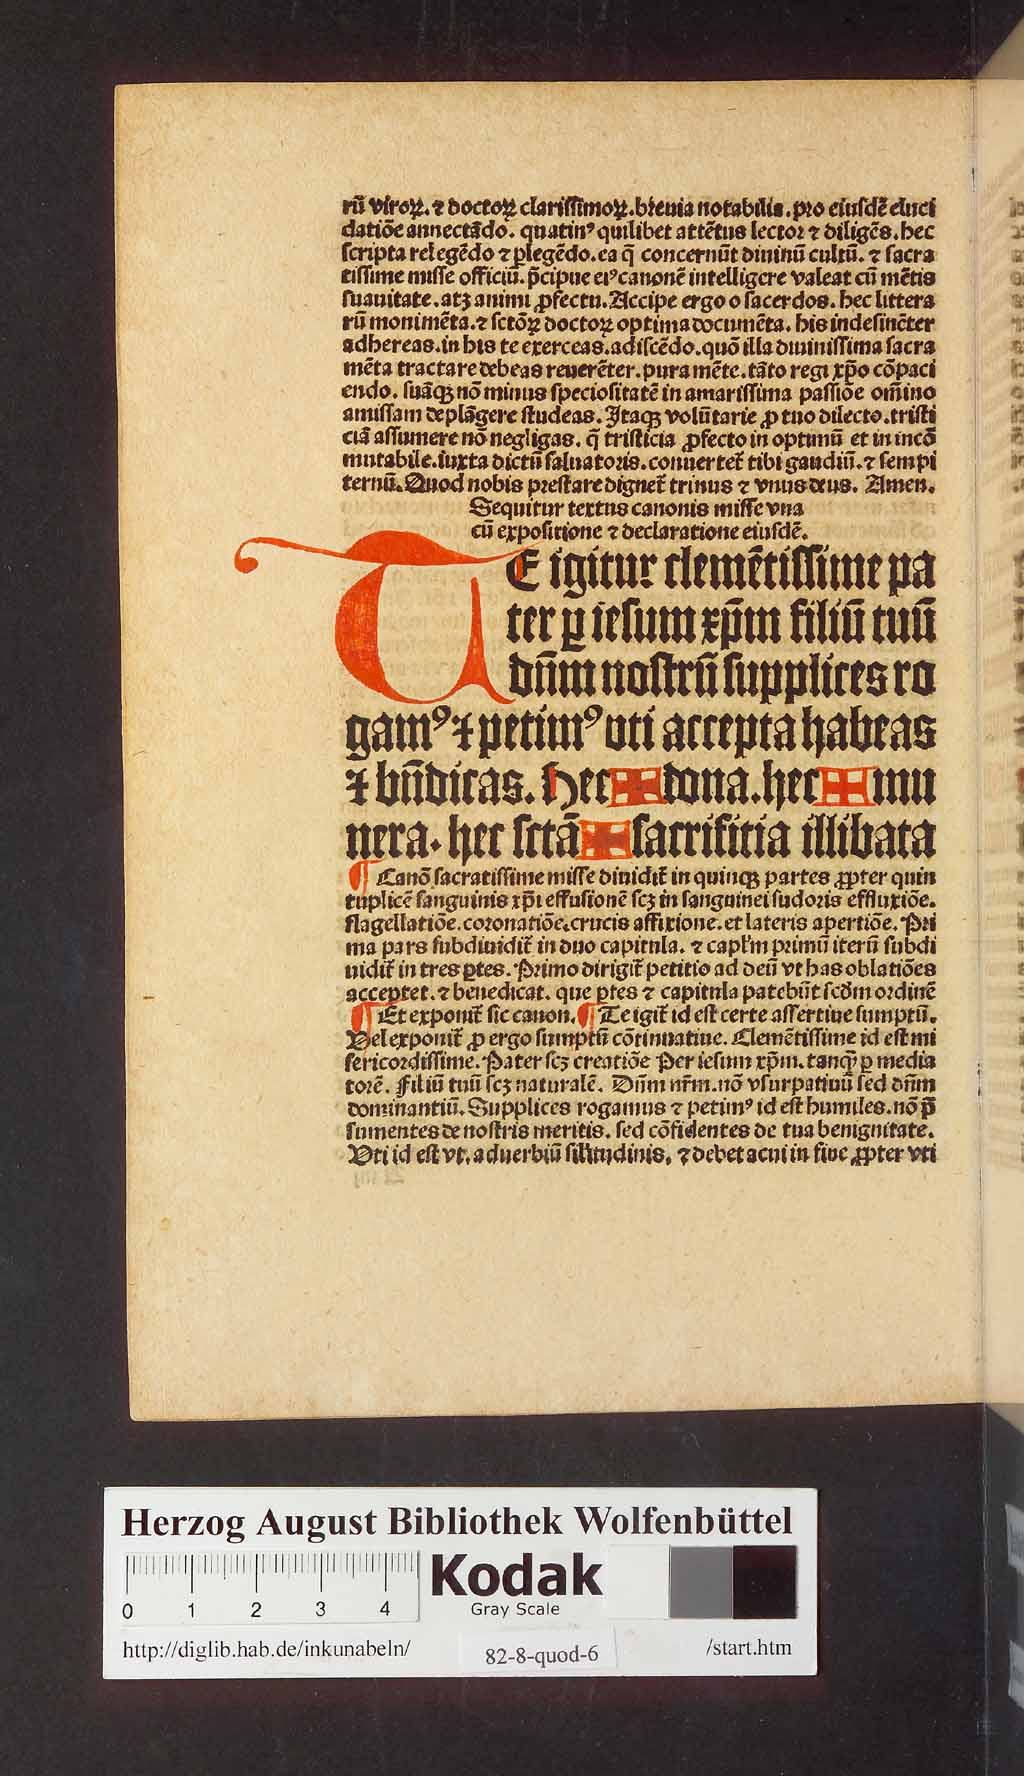 rū viroꝝ. ⁊ doctoꝝ clarissimoꝝ. breuia notabilia. pro eiusdē eluci
datiōe annectādo. quatinꝰ quilibet attētus lector ⁊ diligēs. hec
scripta relegēdo ⁊ ꝑlegēdo. ea q̄ concernūt diuinū cultū. ⁊ sacra
tissime misse officiū. p̄cipue eiꝰ canonē intelligere valeat cū mētis
suauitate. atqꝫ animi ꝓfectu. Accipe ergo o sacerdos. hec littera
rū monimēta. ⁊ sctōꝝ doctoꝝ optima documēta. his indesinēter
adhereas. in his te exerceas. adiscēdo. quō illa diuinissima sacra
mēta tractare debeas reuerēter. pura mēte. tāto regi xp̄o cōpaci
endo. suāqꝫ nō minus speciositatē in amarissima passiōe om̄ino
amissam deplāgere studeas. Itaqꝫ volūtarie ꝓ tuo dilecto. tristi
ciā assumere nō negligas. q̄ tristicia ꝓfecto in optimū et in incō
mutabile. iuxta dictū saluatoris. conuertet̄ tibi gaudiū. ⁊ sempi
ternū. Quod nobis prestare dignet̄ trinus ⁊ vnus deus. Amen.
Sequitur textus canonis misse vna
cū expositione ⁊ declaratione eiusdē.
TE igitur clemētissime pa
ter ꝑ iesum xp̄m filiū tuū
dn̄m nostrū supplices ro
gamꝰ ⁊ petimꝰ uti accepta habeas
⁊ bn̄dicas. Hec ✠ dona. hec ✠ mu
nera. hec sctā ✠ sacrificia illibata
¶ Canō sacratissime misse diuidit̄ in quinqꝫ partes ꝓpter quin
tuplicē sanguinis xp̄i effusionē scꝫ in sanguinei sudoris effluxiōe.
flagellatiōe. coronatiōe. crucis affixione. et lateris apertiōe. Pri
ma pars subdiuidit̄ in duo capitula. ⁊ capl'm primū iterū subdi
uidit̄ in tres ꝑtes. Primo dirigit̄ petitio ad deū vt has oblatiōes
acceptet. ⁊ benedicat. que ꝑtes ⁊ capitula patebūt scd̄m ordinē
¶ Et exponit̄ sic canon. ¶ Te igit̄ id est certe assertiue sumptū.
Vel exponit̄ ꝓ ergo sumptū cōtinuatiue. Clemētissime id est mi
sericordissime. Pater scꝫ creatiōe Per iesum xp̄m. tanqꝫ ꝑ media
torē. Filiū tuū scꝫ naturalē. Dn̄m nr̄m. nō vsurpatiuū sed dn̄m
dominantiū. Supplices rogamus ⁊ petimꝰ id est humiles. nō p̄
sumentes de nostris meritis. sed cōfidentes de tua benignitate.
Vti id est vt. aduerbiū silitudinis. ⁊ debet acui in fine ꝓpter vti
Herzog August Bibliothek Wolfenbüttel
0 1 2 3 4
Kodak
Gray Scale
http://diglib.hab.de/inkunabeln/ 82-8-quod-6 /start.htm